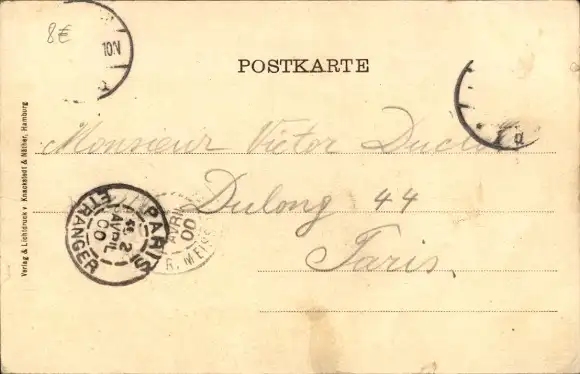 8€
10N
POSTKARTE
Monsieur Victor
Dulong 44
Paris.
PARIS
ETRANGER
2
AVRIL
00
AVRIL
00
R. MEISS
Verlag & Lichtdruck v. Knackstedt & Näther, Hamburg